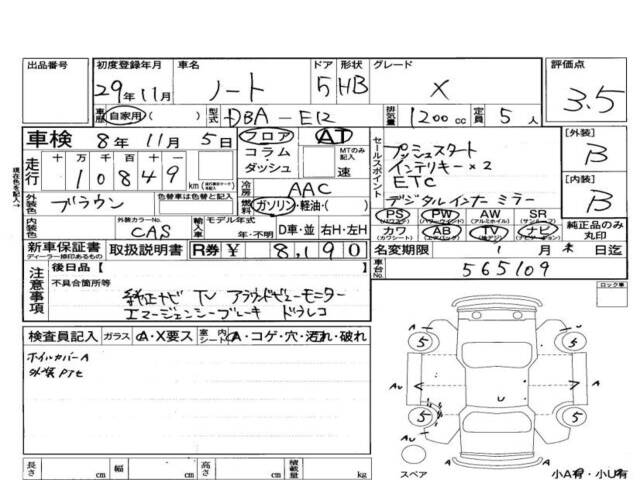 出品番号 初度登録年月 車名 ドア 形状 グレード 評価点
29年11月 ノート 5 HB X 3.5
車歴 自家用 ( ) 型式 DBA-E12 排気量 1200cc 定員 5人
車検 8年 11月 5日 フロア AT セールスポイント [外装]
走行 十 万 千 百 十 一 コラム・ダッシュ MTのみ記入 速 プッシュスタート B
10849 km インテリキー×2
冷房 AAC ETC [内装]
外装色 ブラウン 色替車は色替と記入 燃料 ガソリン・軽油・( ) デジタルインナーミラー B
内装色 外装カラーNo. CAS 輸入車 モデル年式 年・不明 D車・並 右H・左H
PS PW AW SR
(パワステ) (パワーウインド) (アルミホイル) (サンルーフ)
カワ AB TV ナビ 純正品のみ丸印
(カワシート) (エアバッグ)
新車保証書 取扱説明書 R券 ¥ 8,190 名変期限 1月 末日迄
ディーラー捺印あるもの
車台No. 565109
注意事項 後日品 [ ]
不具合箇所等
純正ナビ TV アラウンドビューモニター
エマージェンシーブレーキ ドラレコ
ロック車
検査員記入 ガラス A・X要ス 室内シート A・コゲ・穴・汚れ・破れ
ホイルカバーA
5 5
AU A A
U
5 5
AU A
スペア
小A有・小U有
長さ cm 幅 cm 高さ cm 積載量 kg